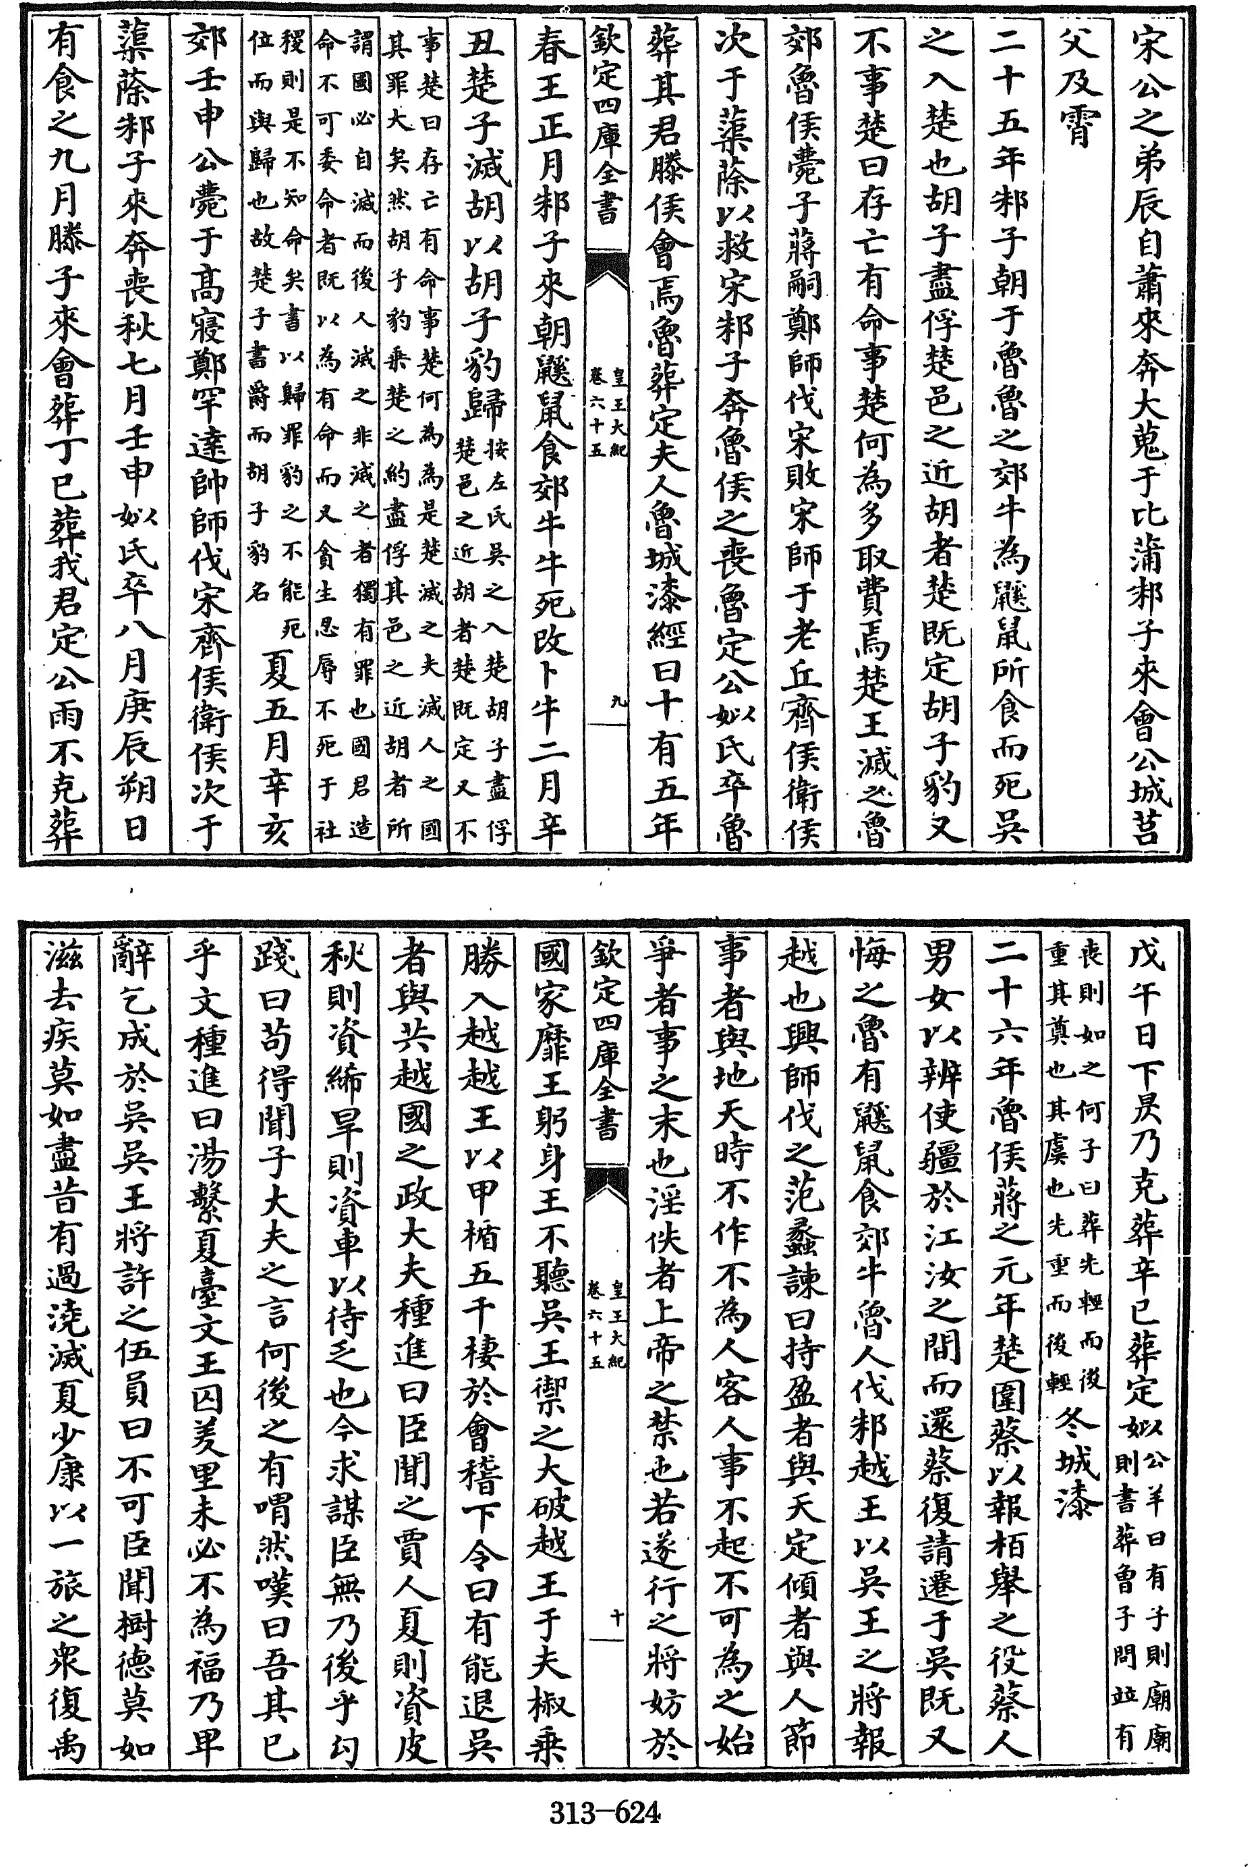 宋公之弟辰自蕭來奔大蒐于比蒲邾子來會公城莒
父及霄
二十五年邾子朝于魯魯之郊牛為鼷鼠所食而死吳
之入楚也胡子盡俘楚邑之近胡者楚既定胡子豹又
不事楚曰存亡有命事楚何為多取費焉楚王滅之魯
郊魯侯薨子蔣嗣鄭師伐宋敗宋師于老丘齊侯衛侯
次于蕖蒢以救宋邾子奔魯侯之喪魯定公姒氏卒魯
葬其君滕侯會焉魯葬定夫人魯城漆經曰十有五年
欽定四庫全書
皇王大紀
卷六十五
九
春王正月邾子來朝鼷鼠食郊牛牛死改卜牛二月辛
丑楚子滅胡以胡子豹歸
按左氏吳之入楚胡子盡俘
楚邑之近胡者楚既定又不
事楚曰存亡有命事楚何為為是楚滅之夫滅人之國
其罪大矣然胡子豹乗楚之約盡俘其邑之近胡者所
謂國必自滅而後人滅之非滅之者獨有罪也國君造
命不可委命者既以為有命而又貪生忍辱不死于社
稷則是不知命矣書以歸罪豹之不能死
位而與歸也故楚子書爵而胡子豹名
夏五月辛亥
郊壬申公薨于高寢鄭罕達帥師伐宋齊侯衛侯次于
蕖蒢邾子來奔喪秋七月壬申姒氏卒八月庚辰朔日
有食之九月滕子來會葬丁巳葬我君定公雨不克葬
戊午日下昃乃克葬辛巳葬定姒
公羊曰有子則廟廟
則書葬曾子問並有
喪則如之何子曰葬先輕而後
重其奠也其虞也先重而後輕
冬城漆
二十六年魯侯蔣之元年楚圍蔡以報栢舉之役蔡人
男女以辨使疆於江汝之間而還蔡復請遷于吳既又
悔之魯有鼷鼠食郊牛魯人伐邾越王以吳王之將報
越也興師伐之范蠡諫曰持盈者與天定傾者與人節
事者與地天時不作不為人客人事不起不可為之始
爭者事之末也淫佚者上帝之禁也若遂行之將妨於
欽定四庫全書
皇王大紀
卷六十五
十
國家靡王躬身王不聽吳王禦之大破越王于夫椒乗
勝入越越王以甲楯五千棲於會稽下令曰有能退吳
者與共越國之政大夫種進曰臣聞之賈人夏則資皮
秋則資絺旱則資車以待乏也今求謀臣無乃後乎勾
踐曰苟得聞子大夫之言何後之有喟然嘆曰吾其已
乎文種進曰湯繫夏臺文王囚羑里未必不為福乃卑
辭乞成於吳吳王將許之伍員曰不可臣聞樹德莫如
滋去疾莫如盡昔有過澆滅夏少康以一旅之衆復禹
313-624